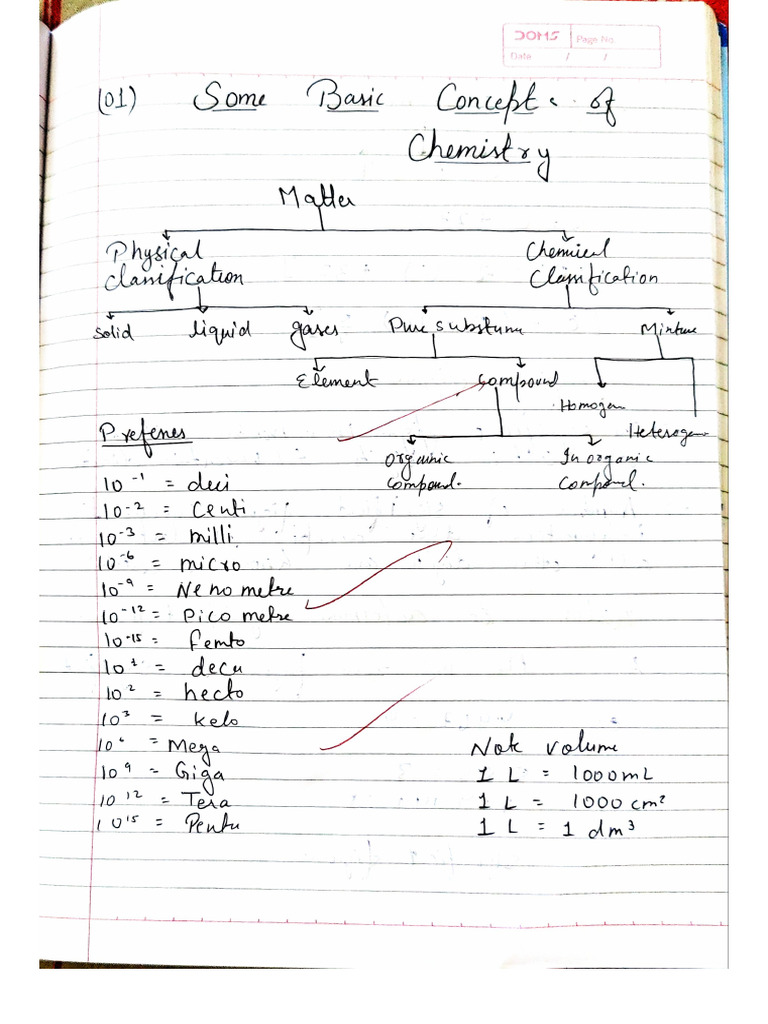 DOMS Page No.
Date / /
(01) Some Basic Concepts of
Chemistry
Matter
Physical Chemical
classification Classification
solid liquid gases Pure substance Mixture
Element Compound
Homogen
Heterogen
Prefenes
Organic Inorganic
compound. Compound.
10⁻¹ = deci
10⁻² = Centi
10⁻³ = milli
10⁻⁶ = micro
10⁻⁹ = Neno metre
10⁻¹² = Pico metre
10⁻¹⁵ = femto
10¹ = deca
10² = hecto
10³ = kelo
10⁶ = Mega
10⁹ = Giga
10¹² = Tera
10¹⁵ = Penta
Note volume
1 L = 1000 mL
1 L = 1000 cm²
1 L = 1 dm³